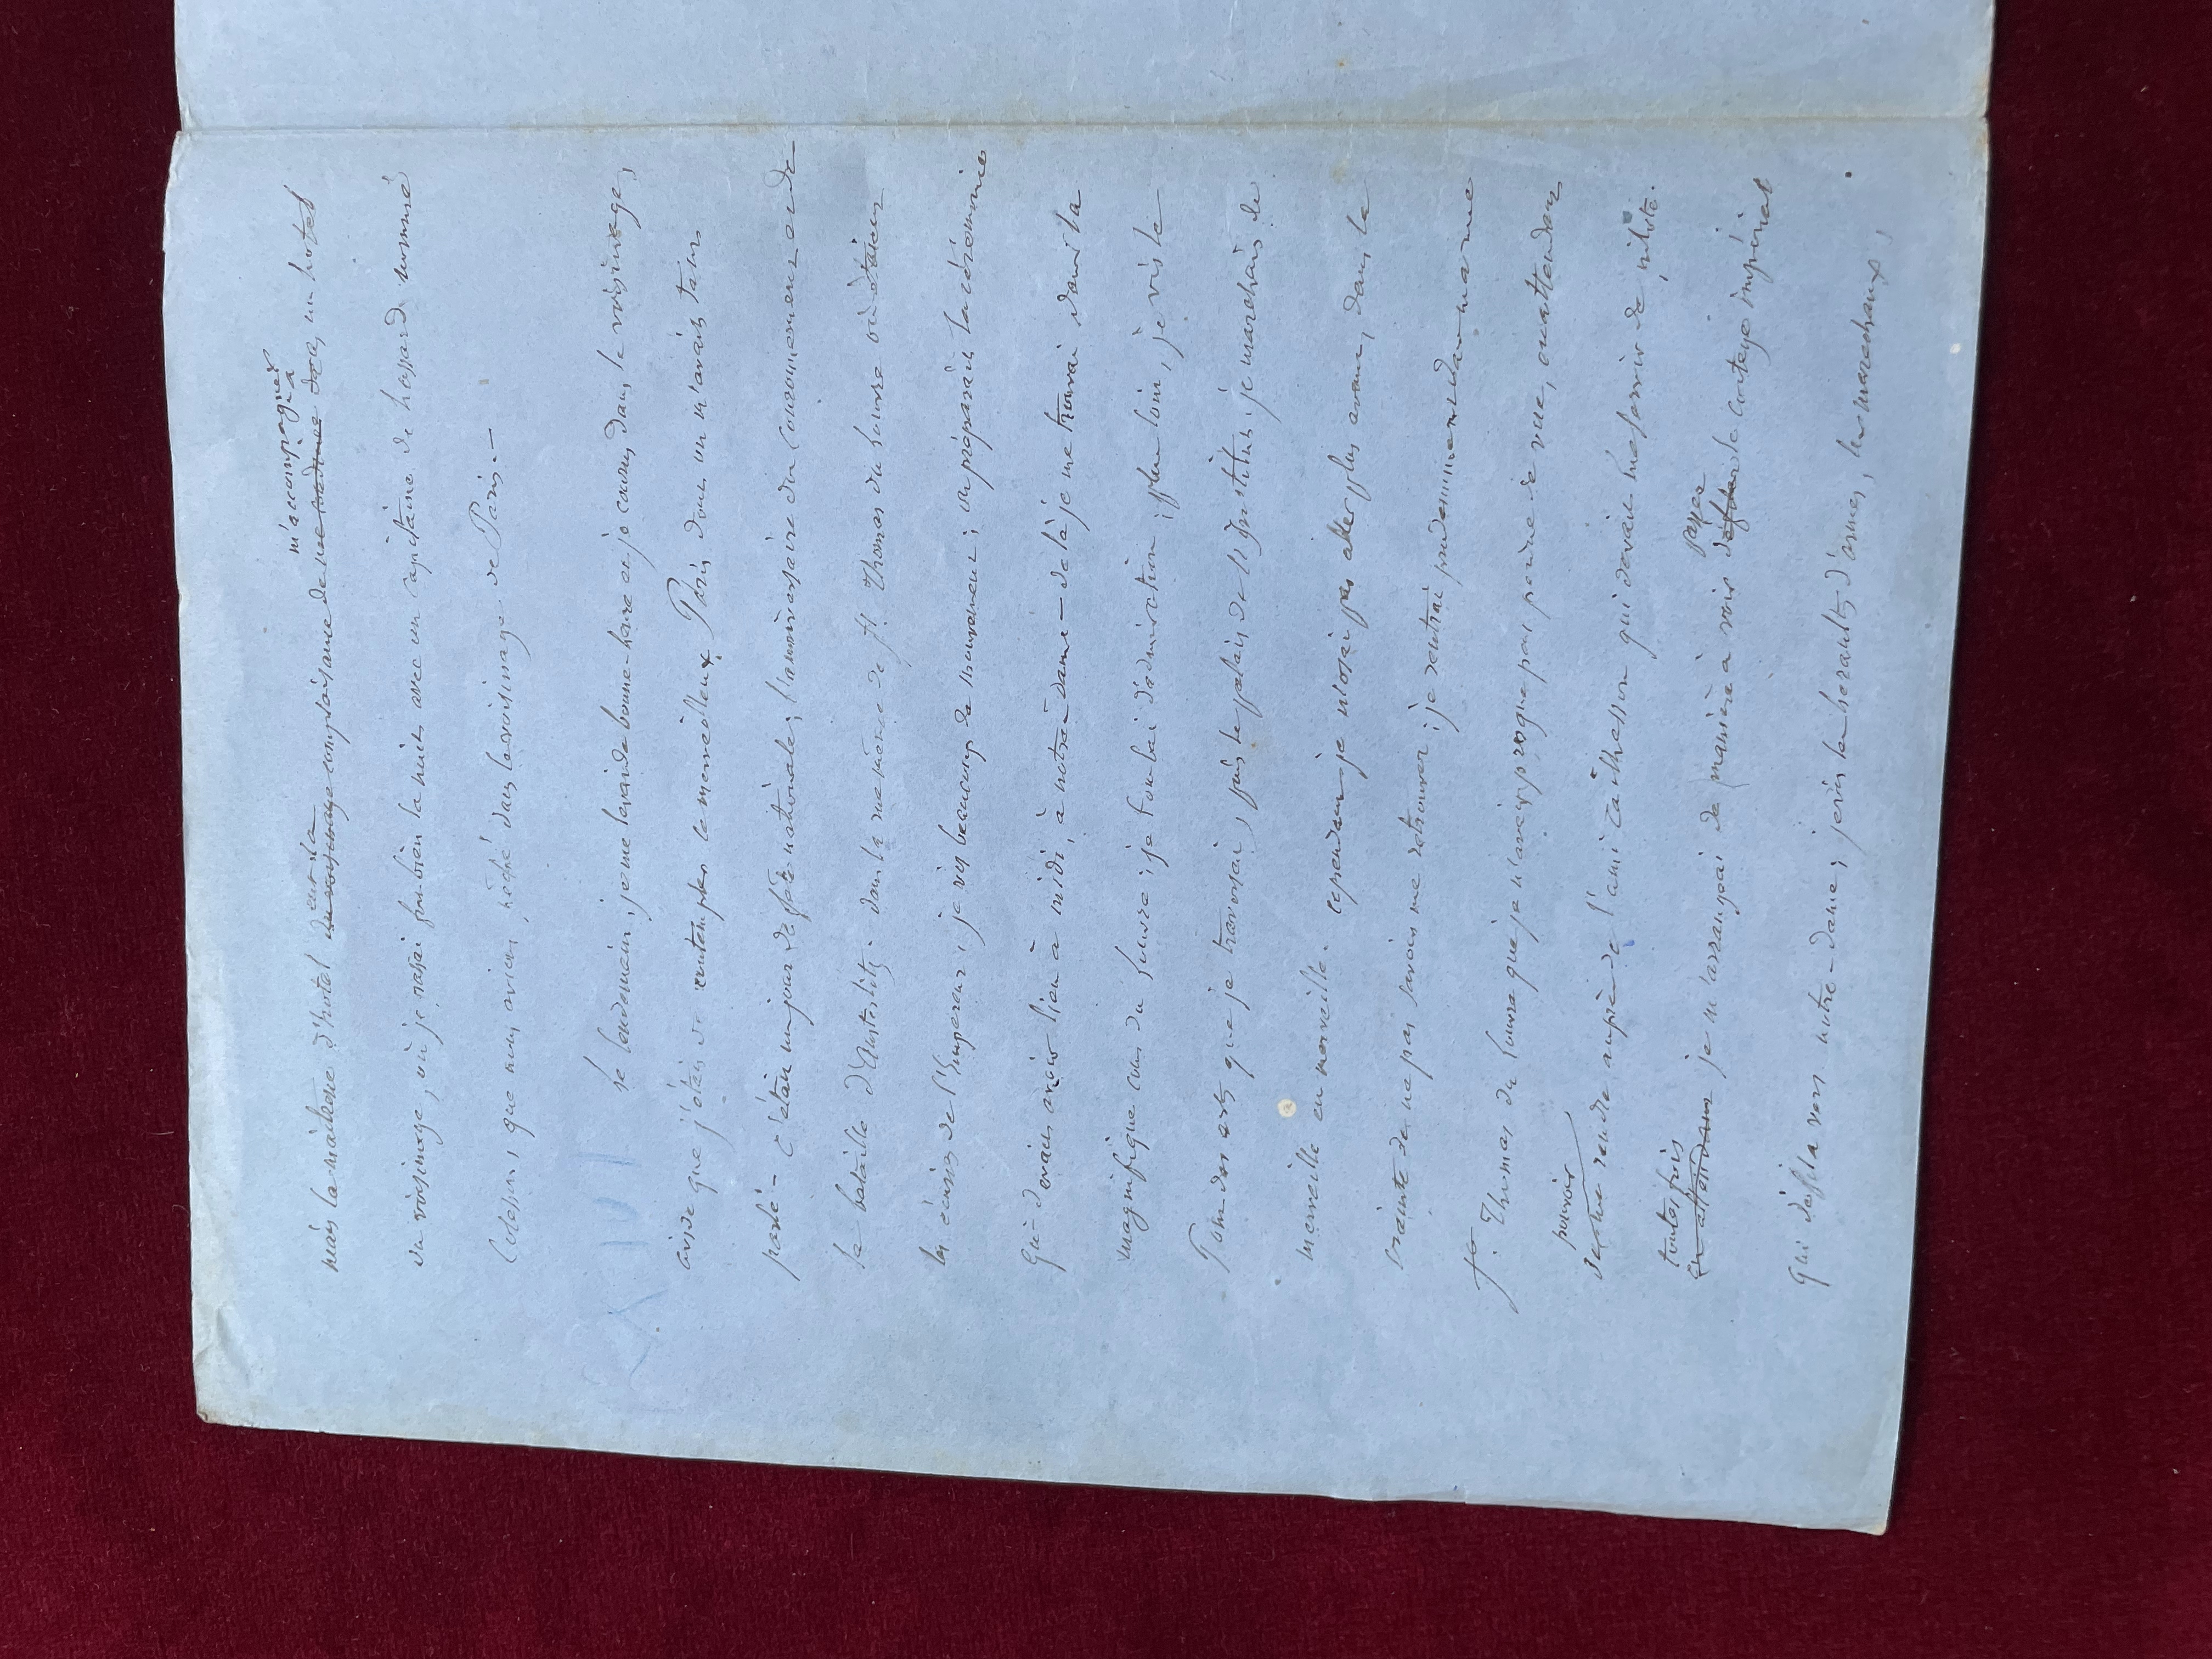 mais la maîtresse d'hotel du voisinage eut la complaisance de me rendre dans m'accompagner à un hotel
du voisinage, où je passai fou bien la nuit avec un capitaine de hazard nommé
Colson, que nous avions pêché dans le voisinage de Paris. —
le lendemain, je me levai de bonne-heure et je courus dans le voisinage,
avide que j'étais de contempler le merveilleux Paris dont on m'avait tant
parlé — c'était un jour de fête nationale, l'anniversaire du couronnement et de
la bataille d'Austerlitz. dans la rue même de St. Thomas du Louvre où étaient
les écuries de l'Empereur, je vis beaucoup de mouvement ; on préparait la cérémonie
qui devait avoir lieu à midi, à notre-dame — de là je me trouvai dans la
magnifique cour du Louvre ; je tombai d'admiration ; plus loin, je vis le
Pont des arts que je traversai, puis le palais de l'Institut ; je marchais de
merveille en merveille. cependant je n'osai pas aller plus avant, dans la
crainte de ne pas savoir me retrouver ; je rentrai prudemment dans ma rue
St. Thomas du Louvre que je n'avais presque pas perdue de vue, en attendant
de me pouvoir rendre auprès de l'ami Cathelson qui devait me servir de pilote.
en attendant toutes fois je m'arrangeai de manière à voir défiler passer le cortège impérial
qui défila vers notre-dame ; je vis les hérauts d'armes, les maréchaux,